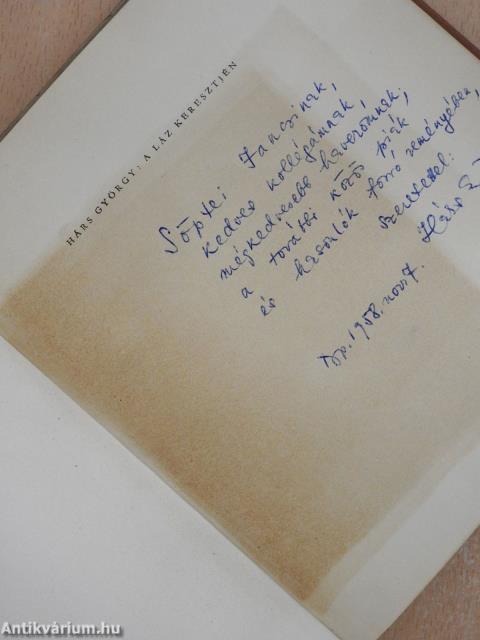 HÁRS GYÖRGY: A LÁZ KERESZTJÉN
Söptei Jancsinak,
kedves kollégámnak,
mégkedvesebb haveromnak,
a további közös piák
és hasonlók forró reményében,
szeretettel:
Hárs
Bp. 1958. nov. 7.
Antikvárium.hu